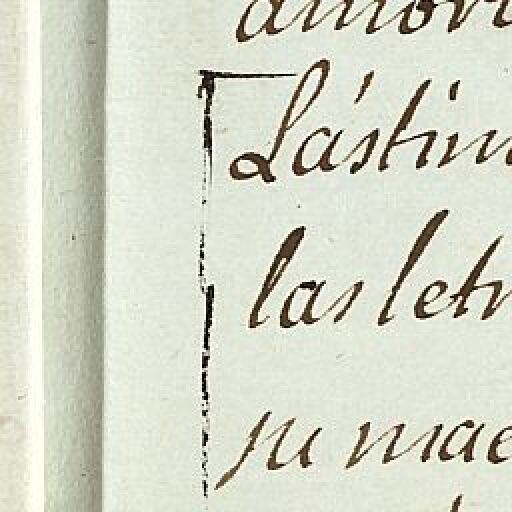 Lástim
las letr
su mae